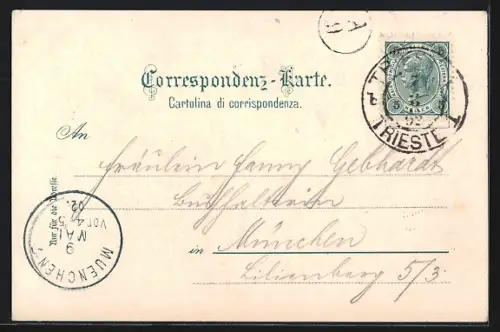 A
TRIEST
5 5
02
TRIESTE 1
Correspondenz-Karte.
Cartolina di corrispondenza.
An
Fräulein Fanny Gebhardt
Buchhalterin
in München
Lilienberg 5/3
Nur für die Adresse.
MUENCHEN
9
MAI
VOR 4-5
02.